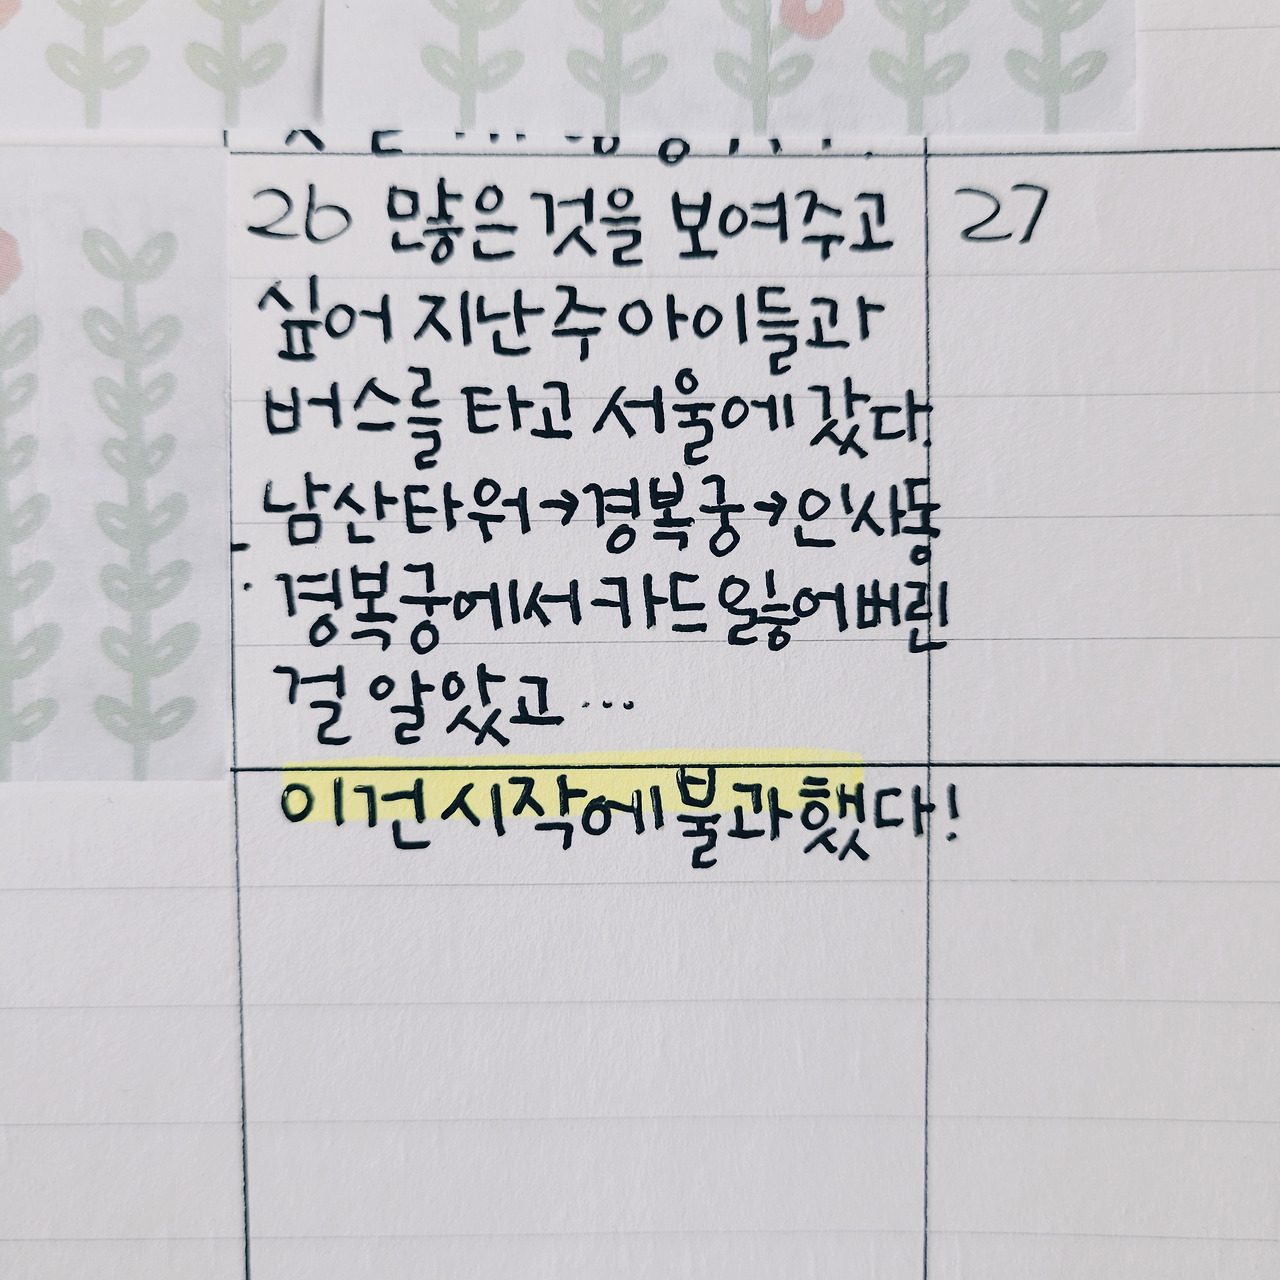 26 많은 것을 보여주고 27
싶어 지난주 아이들과
버스를 타고 서울에 갔다.
남산타워→경복궁→인사동
경복궁에서 카드 잃어버린
걸 알았고...
이건 시작에 불과했다!